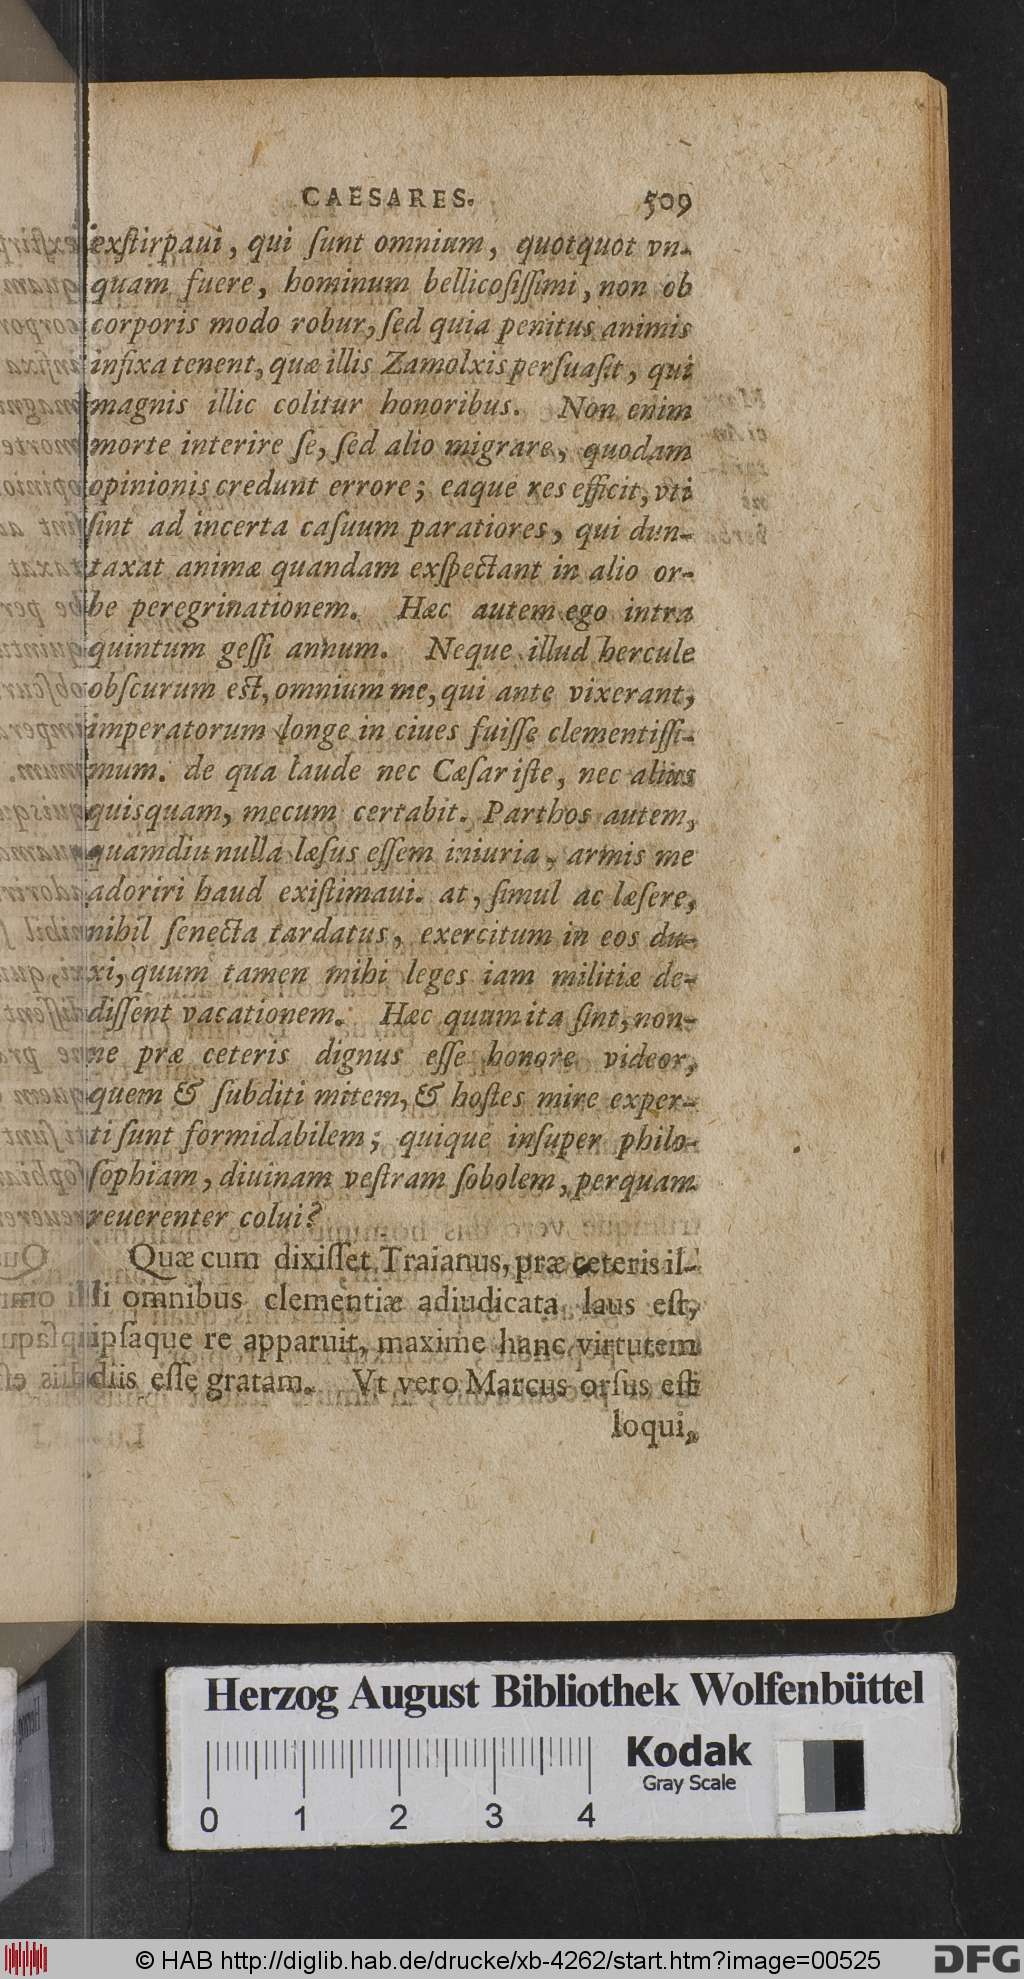 CAESARES. 509
exſtirpaui, qui ſunt omnium, quotquot vn-
quam fuere, hominum bellicoſiſſimi, non ob
corporis modo robur, ſed quia penitus animis
infixa tenent, quæ illis Zamolxis perſuaſit, qui
magnis illic colitur honoribus. Non enim
morte interire ſe, ſed alio migrare, quodam
opinionis credunt errore; eaque res efficit, vti
ſint ad incerta caſuum paratiores, qui dun-
taxat animæ quandam exſpectant in alio or-
be peregrinationem. Hæc autem ego intra
quintum geſſi annum. Neque illud hercule
obſcurum eſt, omnium me, qui ante vixerant,
imperatorum longe in ciues fuiſſe clementiſſi-
mum. de qua laude nec Cæſar iſte, nec alius
quisquam, mecum certabit. Parthos autem,
quamdiu nulla læſus eſſem iniuria, armis me
adoriri haud exiſtimaui. at, ſimul ac læſere,
nihil ſenecta tardatus, exercitum in eos du-
xi, quum tamen mihi leges iam militiæ de-
diſſent vacationem. Hæc quum ita ſint, non-
ne præ ceteris dignus eſſe honore videor,
quem & ſubditi mitem, & hoſtes mire exper-
ti ſunt formidabilem; quique inſuper philo-
ſophiam, diuinam veſtram ſobolem, perquam
reuerenter colui?
Quæ cum dixiſſet Traianus, præ ceteris il-
li omnibus clementiæ adiudicata laus eſt,
ipſaque re apparuit, maxime hanc virtutem
diis eſſe gratam. Vt vero Marcus orſus eſt
loqui,
Herzog August Bibliothek Wolfenbüttel
Kodak
Gray Scale
0 1 2 3 4
© HAB http://diglib.hab.de/drucke/xb-4262/start.htm?image=00525
DFG